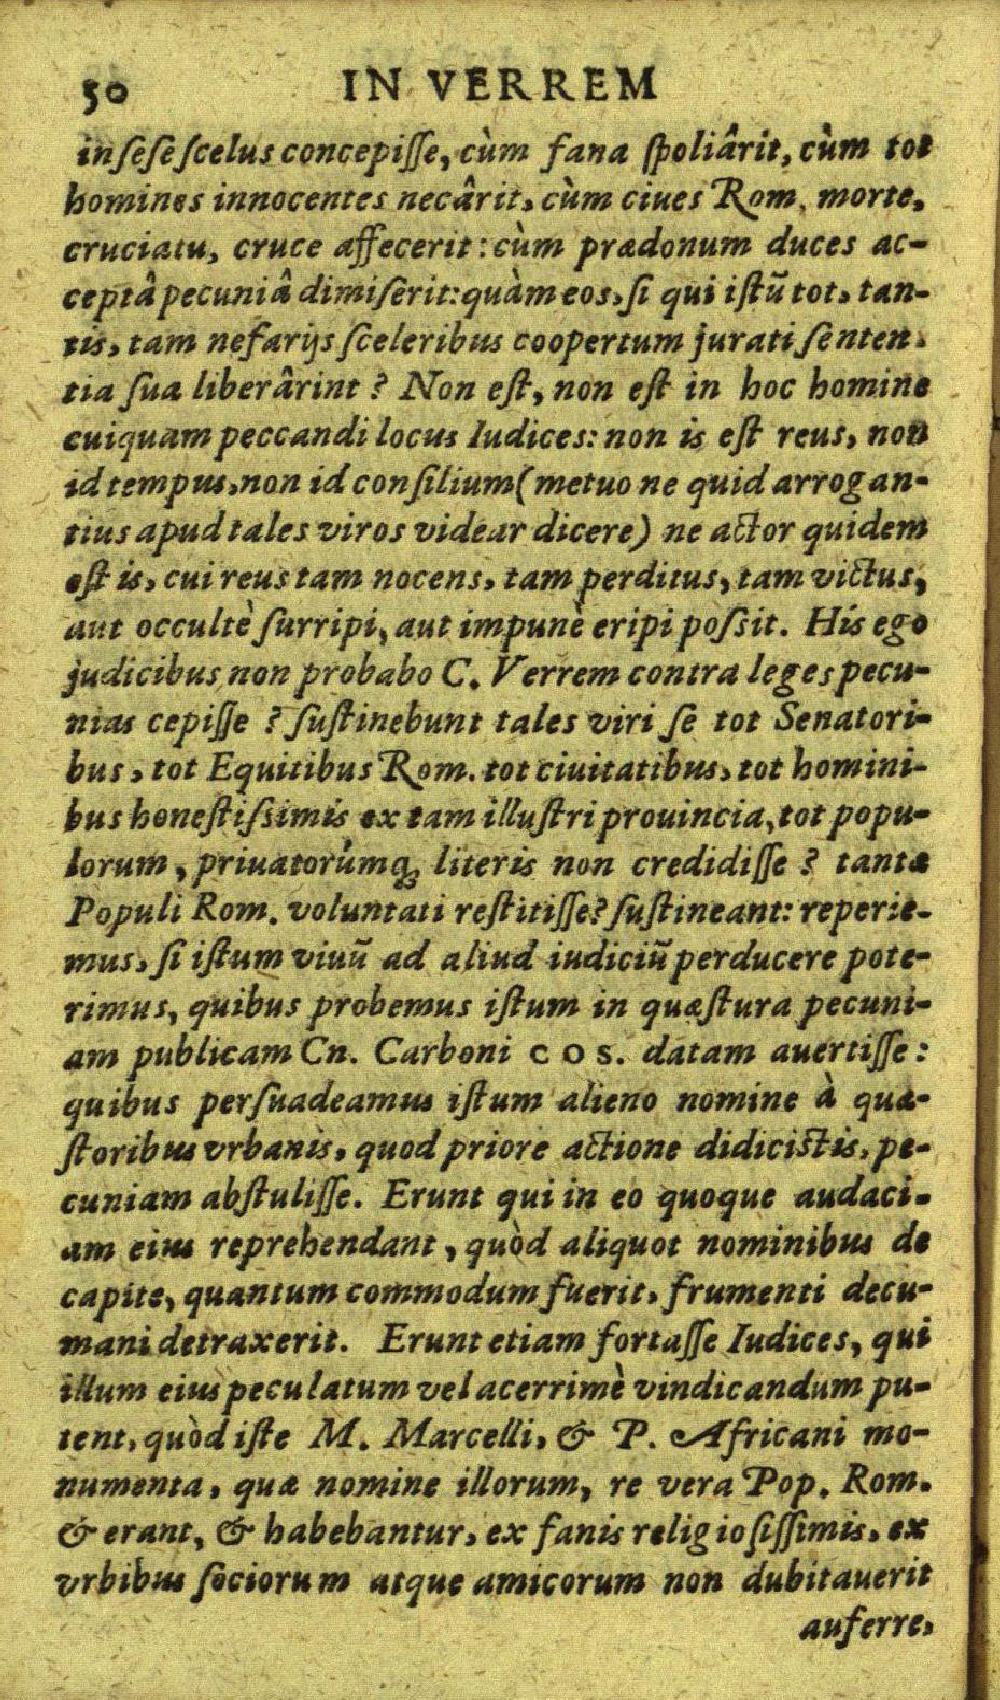 50 IN VERREM
in sese scelus concepisse, cùm fana spoliârit, cùm tot
homines innocentes necârit, cùm ciues Rom. morte,
cruciatu, cruce affecerit: cùm prædonum duces ac-
ceptâ pecuniâ dimiserit: quàm eos, si qui istũ tot, tan-
tis, tam nefarijs sceleribus coopertum jurati senten-
tia sua liberârint? Non est, non est in hoc homine
cuiquam peccandi locus Iudices: non is est reus, non
id tempus, non id consilium (metuo ne quid arrogan-
tius apud tales viros videar dicere) ne actor quidem
est is, cui reus tam nocens, tam perditus, tam victus,
aut occultè surripi, aut impunè eripi possit. His ego
judicibus non probabo C. Verrem contra leges pecu-
nias cepisse? sustinebunt tales viri se tot Senatori-
bus, tot Equitibus Rom. tot ciuitatibus, tot homini-
bus honestissimis ex tam illustri prouincia, tot popu-
lorum, priuatorúmq; literis non credidisse? tantæ
Populi Rom. voluntati restitisse? sustineant: reperie-
mus, si istum viuũ ad aliud iudiciũ perducere pote-
rimus, quibus probemus istum in quæstura pecuni-
am publicam Cn. Carboni COS. datam auertisse:
quibus persuadeamus istum alieno nomine à quæ-
storibus vrbanis, quod priore actione didicistis, pe-
cuniam abstulisse. Erunt qui in eo quoque audaci-
am eius reprehendant, quòd aliquot nominibus de
capite, quantum commodum fuerit, frumenti decu-
mani detraxerit. Erunt etiam fortasse Iudices, qui
illum eius peculatum vel acerrimè vindicandum pu-
tent, quòd iste M. Marcelli, & P. Africani mo-
numenta, quæ nomine illorum, re vera Pop. Rom.
& erant, & habebantur, ex fanis religiosissimis, ex
vrbibus sociorum atque amicorum non dubitauerit
auferre,